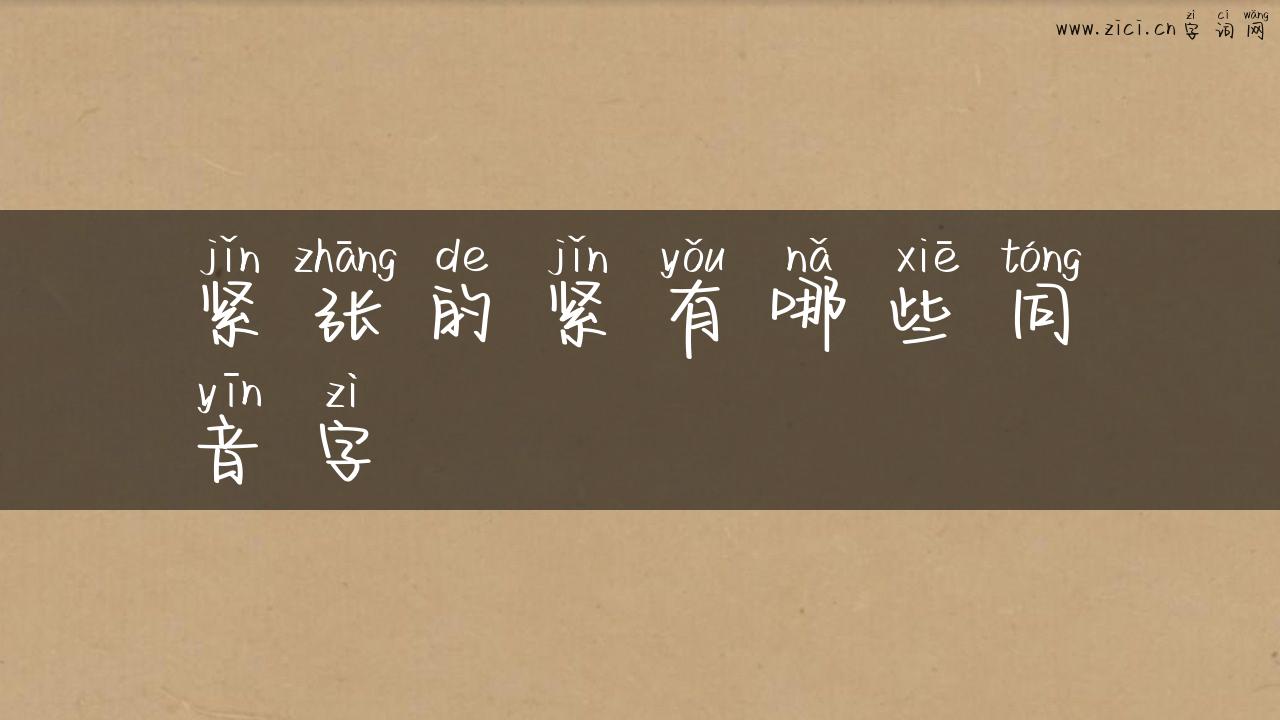 zì cí wǎng
www.zici.cn 字 词 网
jǐn zhāng de jǐn yǒu nǎ xiē tóng
紧 张 的 紧 有 哪 些 同
yīn zì
音 字